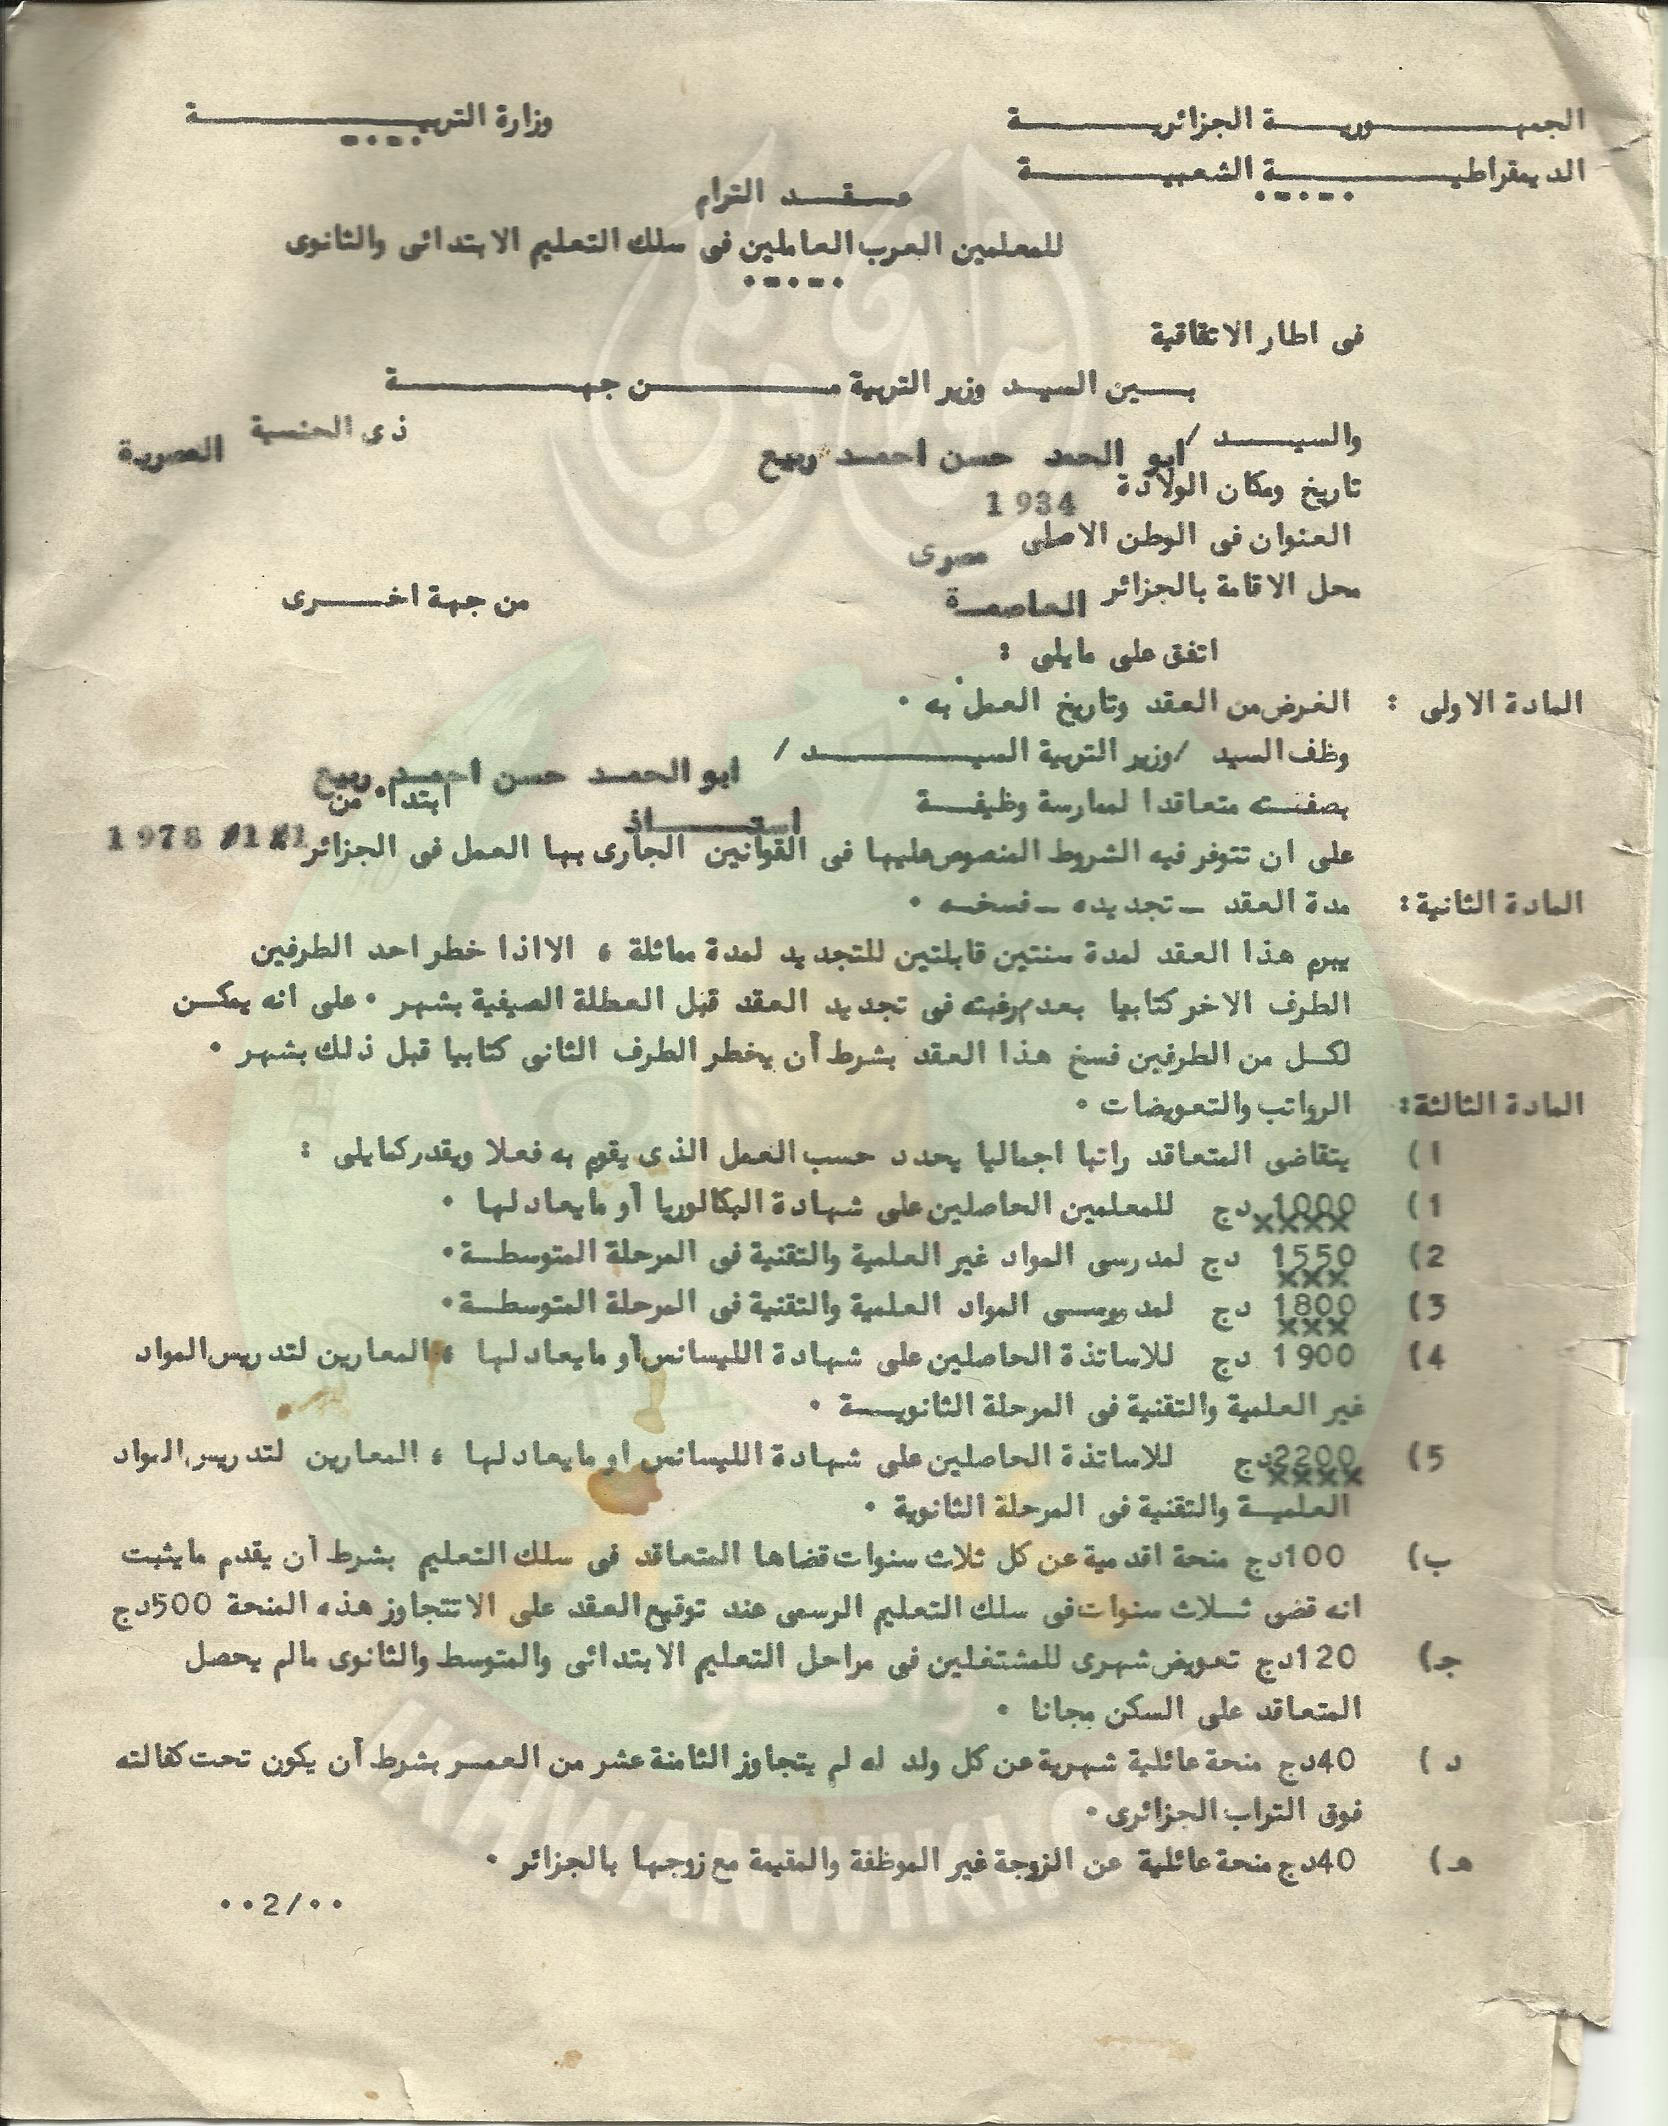 الجمهورية الجزائرية
وزارة التربية
الديمقراطية الشعبية
عقد التزام
للمعلمين العرب العاملين فى سلك التعليم الابتدائى والثانوى
فى اطار الاتفاقية
بين السيد وزير التربية من جهة
والسيد / ابو الحمد حسن احمد ربيع ذى الجنسية المصرية
تاريخ ومكان الولادة 1934
العنوان فى الوطن الاصلى مصرى
محل الاقامة بالجزائر العاصمة من جهة اخرى
اتفق على مايلى :
المادة الاولى : الغرض من العقد وتاريخ العمل به .
وظف السيد /وزير التربية السيد / ابو الحمد حسن احمد ربيع
بصفته متعاقدا لممارسة وظيفة استاذ ابتداء من
على ان تتوفر فيه الشروط المنصوص عليها فى القوانين الجارى بها العمل فى الجزائر 1978
المادة الثانية: مدة العقد - تجديده - فسخه .
يبرم هذا العقد لمدة سنتين قابلتين للتجديد لمدة مماثلة ، الا اذا خطر احد الطرفين
الطرف الاخر كتابيا بعدم رغبته فى تجديد العقد قبل العطلة الصيفية بشهر . على انه يمكن
لكل من الطرفين فسخ هذا العقد بشرط أن يخطر الطرف الثانى كتابيا قبل ذلك بشهر .
المادة الثالثة: الرواتب والتعويضات .
ا) يتقاضى المتعاقد راتبا اجماليا يحدد حسب العمل الذى يقوم به فعلا ويقدر كمايلى :
1) 1000 دج للمعلمين الحاصلين على شهادة البكالوريا أو مايعادلها .
xxxx
2) 1550 دج لمدرسى المواد غير العلمية والتقنية فى المرحلة المتوسطة .
xxx
3) 1800 دج لمدرسى المواد العلمية والتقنية فى المرحلة المتوسطة .
xxx
4) 1900 دج للاساتذة الحاصلين على شهادة الليسانس أو مايعادلها ، المعارين لتدريس المواد
غير العلمية والتقنية فى المرحلة الثانوية .
5) 2200دج للاساتذة الحاصلين على شهادة الليسانس او مايعادلها ، المعارين لتدريس المواد
xxxx
العلمية والتقنية فى المرحلة الثانوية .
ب) 100دج منحة اقدمية عن كل ثلاث سنوات قضاها المتعاقد فى سلك التعليم بشرط أن يقدم مايثبت
انه قضى ثلاث سنوات فى سلك التعليم الرسمى عند توقيع العقد على الا تتجاوز هذه المنحة 500دج
جـ) 120دج تعويض شهرى للمشتغلين فى مراحل التعليم الابتدائى والمتوسط والثانوى مالم يحصل
المتعاقد على السكن مجانا .
د) 40دج منحة عائلية شهرية عن كل ولد له لم يتجاوز الثامنة عشر من العمر بشرط أن يكون تحت كفالته
فوق التراب الجزائرى .
هـ) 40دج منحة عائلية عن الزوجة غير الموظفة والمقيمة مع زوجها بالجزائر .
..2/..